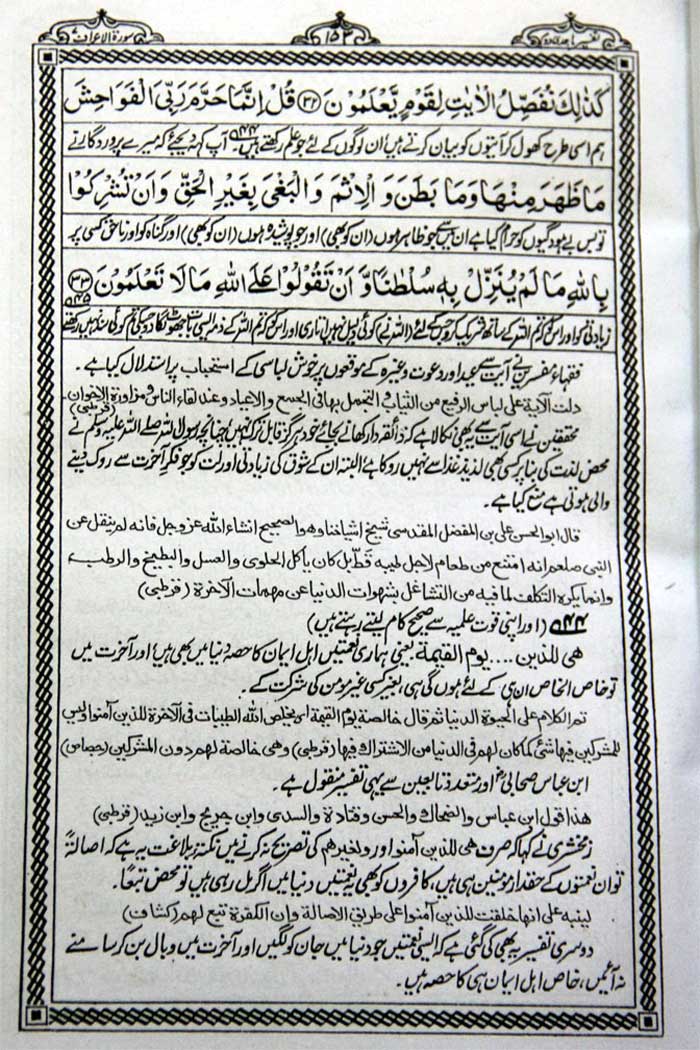 تفسیر ماجدی
۱۵۳
سورۃ الاعراف
كَذٰلِكَ نُفَصِّلُ الْاٰيٰتِ لِقَوْمٍ يَّعْلَمُوْنَ ﴿۳۲﴾ قُلْ اِنَّمَا حَرَّمَ رَبِّيَ الْفَوَاحِشَ
ہم اسی طرح کھول کر آیتوں کو بیان کرتے ہیں ان لوگوں کے لئے جو علم رکھتے ہیں۔ ۵۴۴ آپ کہہ دیجئے کہ میرے پروردگار نے
مَا ظَهَرَ مِنْهَا وَمَا بَطَنَ وَالْاِثْمَ وَالْبَغْيَ بِغَيْرِ الْحَقِّ وَاَنْ تُشْرِكُوْا
تو بس بے ہودگیوں کو حرام کیا ہے ان میں سے جو ظاہر ہوں (ان کو بھی) اور جو پوشیدہ ہوں (ان کو بھی) اور گناہ کو اور ناحق کسی پر
بِاللّٰهِ مَا لَمْ يُنَزِّلْ بِهٖ سُلْطٰنًا وَّ اَنْ تَقُوْلُوْا عَلَى اللّٰهِ مَا لَا تَعْلَمُوْنَ ﴿۳۳﴾
زیادتی کو اور اس کو کہ تم اللہ کے ساتھ شریک کرو جس کے لئے (اللہ نے) کوئی دلیل نہیں اتاری اور اس کو کہ تم اللہ کے ذمہ ایسی بات جھوٹ لگا دو جس کی تم کوئی سند نہیں رکھتے ۵۴۵
فقہاء مفسرین نے آیت سے عید اور دعوت وغیرہ کے موقعوں پر خوش لباسی کے استحباب پر استدلال کیا ہے۔
دلت الآية على لباس الرفيع من الثياب والتجمل بها في الجمع والاعياد وعند لقاء الناس ومزاورة الاخوان (قرطبی)
محققین نے اسی آیت سے یہ بھی نکالا ہے کہ ذائقہ دار کھانے بجائے خود ہرگز قابل ترک نہیں، چنانچہ رسول اللہ صلے اللہ علیہ وسلم نے
محض لذت کی بنا پر کسی بھی لذیذ غذا سے نہیں روکا ہے، البتہ ان کے شوق کی زیادتی اور لت کو جو فکر آخرت سے روک دینے
والی ہوتی ہے منع کیا ہے۔
قال ابو الحسن علی بن المفضل المقدسی شیخ اشیاخنا وهو الصحيح انشاء الله عز وجل فانه لم ينقل عن
النبی صلعم انه امتنع من طعام لاجل طيبه قط بل كان ياكل الحلوى والعسل والبطيخ والرطب
وانما يكره التكلف لما فيه من التشاغل بشهوات الدنيا عن مهمات الآخرة (قرطبی)
۵۴۴ (اور اپنی قوت علمیہ سے صحیح کام لیتے رہتے ہیں)
هی للذین .... یوم القیمة یعنی ہماری نعمتیں اہل ایمان کا حصہ دنیا میں بھی ہیں، اور آخرت میں
تو خاص الخاص ان ہی کے لئے ہوں گی ہی، بغیر کسی غیر مومن کی شرکت کے۔
تم الكلام على الحيوة الدنيا ثم قال خالصة يوم القيمة ای يخلص الله الطيبات فی الآخرة للذين آمنوا وليس
للمشركين فيها شئ كما كان لهم فی الدنيا من الاشتراك فيها (قرطبی) وهى خالصة لهم دون المشركين (جصاص)
ابن عباس صحابیؓ اور متعدد تابعین سے یہی تفسیر منقول ہے۔
هذا قول ابن عباس والضحاك والحسن وقتادة والسدی وابن جريج وابن زيد (قرطبی)
زمخشری نے کہا کہ صرف هی للذین آمنوا اور ولغیرهم کی تصریح نہ کرنے میں نکتۂ بلاغت یہ ہے کہ اصالۃً
تو ان نعمتوں کے حقدار مومنین ہی ہیں، کافروں کو بھی یہ نعمتیں دنیا میں اگر مل رہی ہیں تو محض تبعًا۔
لينبه على انها خلقت للذين آمنوا على طريق الاصالة وان الكفرة تبع لهم (کشاف)
دوسری تفسیر یہ بھی کی گئی ہے کہ ایسی نعمتیں جو دنیا میں جان کو لگیں اور آخرت میں وبال بن کر سامنے
نہ آئیں، خاص اہل ایمان ہی کا حصہ ہیں۔